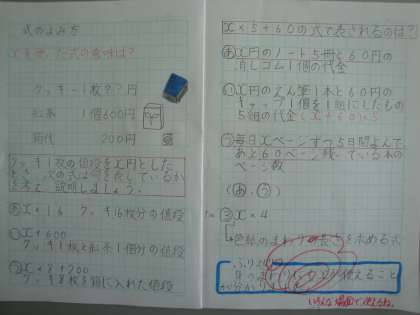 式のよみ方
xを使った式の意味は?
クッキー1枚?円
紅茶 1個600円
箱代 200円
クッキー1枚の値段をx円とした
とき、次の式は何を表しているか
を考え、説明しましょう。
あx×16 クッキー16枚分の値段
いx+600
クッキー1枚と紅茶1個分の値段
うx×8+200
クッキー8枚を箱に入れた値段
x×5+60の式で表されるのは?
あx円のノート5冊と60円の
消しゴム1個の代金
いx円のえん筆1本と60円の
キャップ1個を1組にしたもの
5組の代金(x+60)×5
う毎日xページずつ5日間よんで、
あと60ページ残っている本の
ページ数
(あ、う)
x×4
色紙のまわりの長さを求める式
ふり
使えること
が分かりました
いろんな場面で使えるね。